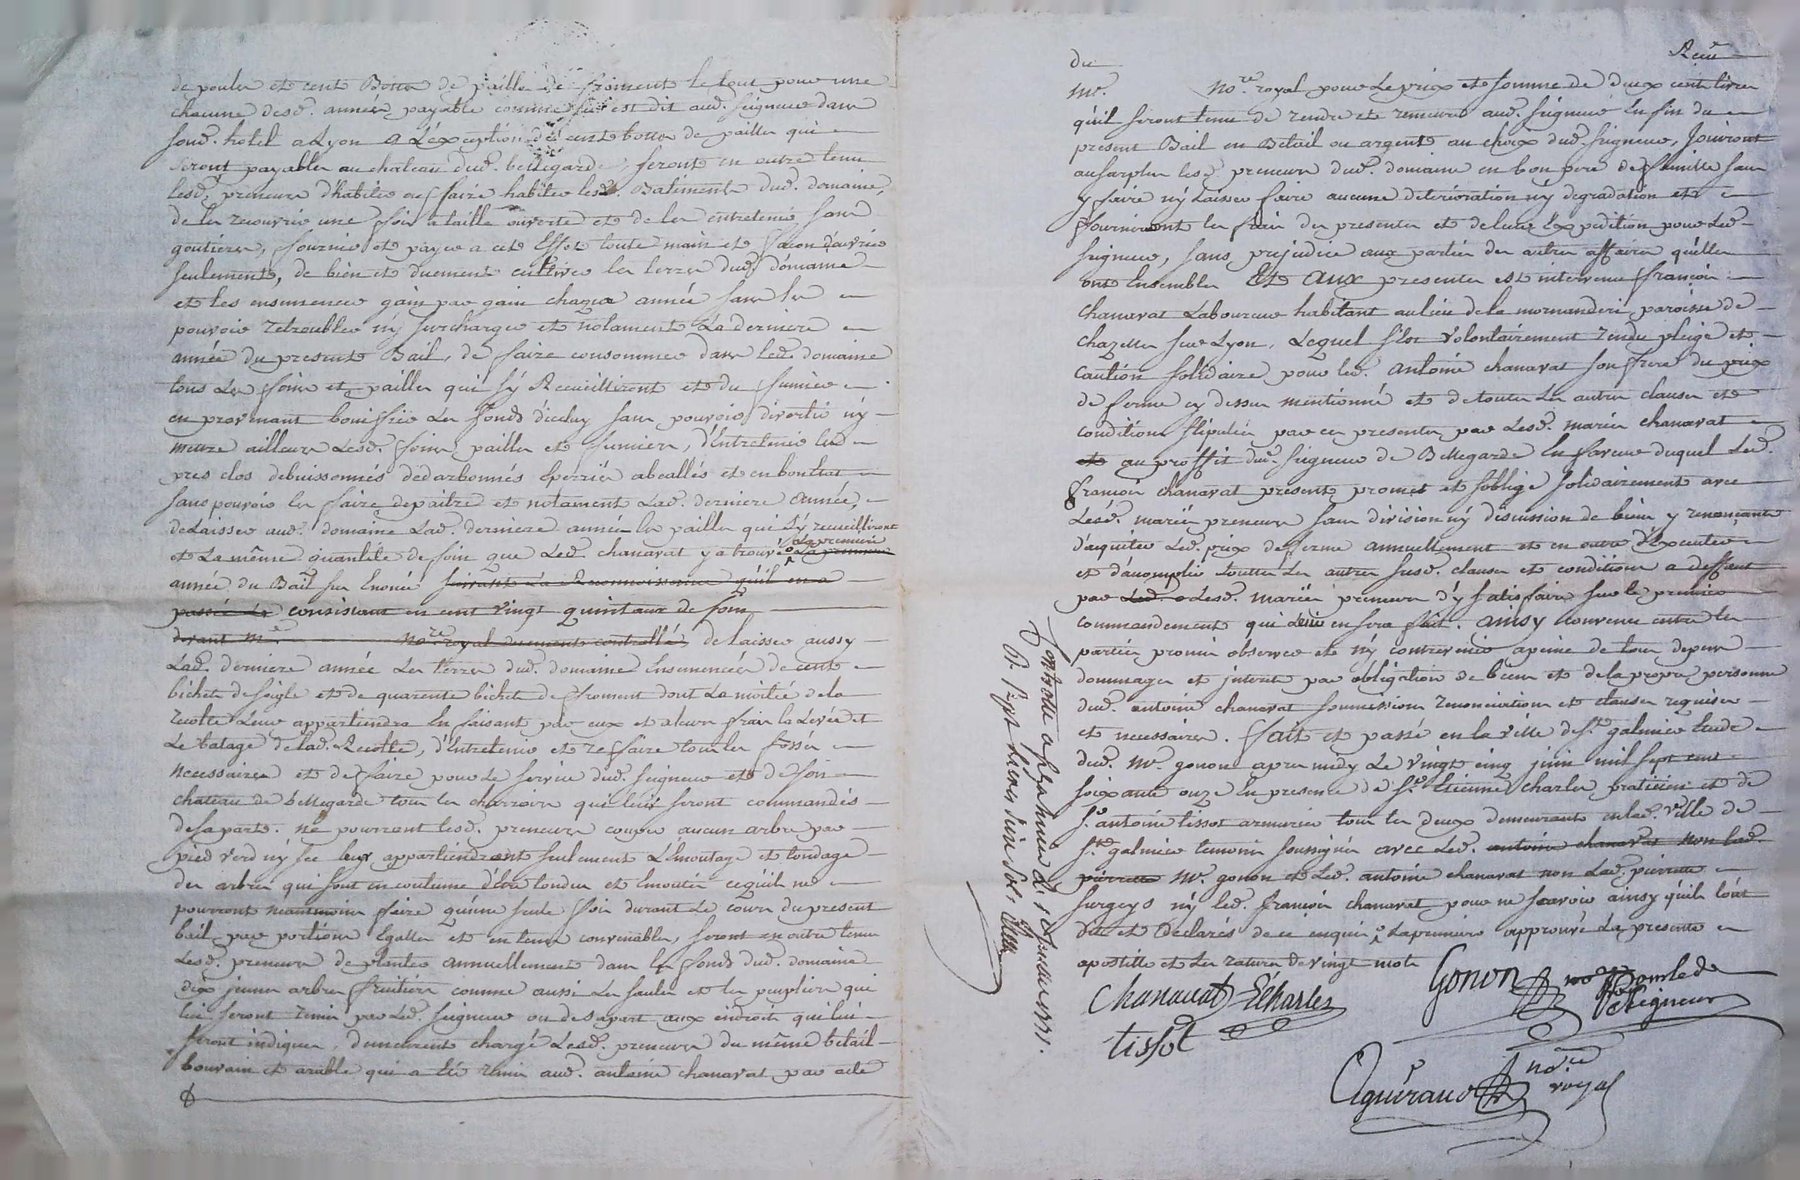 de poules et cent Bottes de paille de froment le tout pour une
chacune desd. années payable comme sus est dit aud. seigneur dans
sond. hotel a Lyon a L'exception de cents bottes de pailles qui
seront payables au chateau dud. bellegarde, seront en outre tenus
lesd. preneurs d'habiter ou faire habiter lesd. Batiments dud. domaine,
de les recouvrir une fois a taille ouverte et de les entretenir sans
goutieres, fournir et payer a cet Effet toute main et façon d'ouvrier
seulements, de bien et duement cultiver les terres dud. domaine
et les ensemencer gain par gain chaque année sans les
pouvoir retroubler ny surcharger et notament La derniere
année du presents Bail, de faire consommer dans led. domaine
tous Les foins et pailles qui s'y Recueilliront et du fumier
en provenant bouiffier Les fonds d'iceluy sans pouvoir divertir ny
mettre ailleurs Lesd. foins pailles et fumiers, d'Entretenir les
pres clos debuissonnés dedarbonnés Epierrés abeallés et en bon Etat
sans pouvoir les faire depaitre et notament Lad. derniere année,
de Laisser aud. domaine Lad. derniere année les pailles qui s'y recueilliront
et La même quantité de foin que Led. chanavat y a trouvé La premiere
année du Bail sus Enoncé suivant La Reconnoissance qu'il en a
passée Le consistant en cent vingt quintaux de foin
devant me. nore. royal duement controllé, de laisser aussy
Lad. derniere année Les terres dud. domaine Ensemencées de cent
bichets de seigle et de quarente bichets de froment dont La moitié de la
recolte Leur appartiendra En faisant par eux et a leurs frais la Levée et
Le batage de lad. Recolte, d'Entretenir et refaire tous les fossés
necessaires et de faire pour Le service dud. seigneur et de son
chateau de bellegarde tous les charrois qui leurs seront commandés
de sa parts. ne pourront lesd. preneurs couper aucun arbre par
pied verd ny sec leurs appartiendront seulement L'Emoutage et tondage
des arbres qui sont en coutume d'être tondus et Emoutés ce qu'ils ne
pourront neantmoins faire qu'une seule fois durant Le cours du present
bail par portions Egalles et en tems convenables, seront en outre tenus
Lesd. preneurs de planter annuellement dans les fonds dud. domaine
dix jeunes arbres fruitiers comme aussi Les saules et les peupliers qui
lui seront remis par Led. seigneur ou de sa part aux endroits qui lui
seront indiqués, demeurent chargé Lesd. preneurs du même betail
bouvain et arable qui a été remis aud. antoine chanavat par acte
Recu
du
me. nore. royal pour Le prix et somme de deux cent livres
qu'il seront tenus de rendre et remettre aud. seigneur En fin du
present Bail en Betail ou argent au choix dud. seigneur, Jouiront
au surplus lesd. preneurs dud. domaine en bon pere de famille sans
y faire ny Laisser faire aucune deterioration ny degradation et
fourniront les frais des presentes et de leurs Expedition pour Led.
seigneur, sans prejudice aux parties des autres affaires qu'elles
ont Ensembles Et aux presentes est intervenu françois
chanavat Laboureur habitant au lieu de la mornanderi, paroisse de
chazelles sur Lyon, Lequel s'est volontairement rendu pleige et
caution solidaire pour led. antoine chanavat son frere du prix
de ferme cy dessus mentionné et de toutes Les autres clauses et
conditions stipulées par ces presentes par Lesd. mariés chanavat
et au proffit dud. seigneur de Bellegarde En faveur duquel Led.
françois chanavat present promet et s'oblige solidairement avec
Lesd. mariés preneurs sans division ny discussion de biens y renonçants
d'aquiter Led. prix de ferme annuellement et en outre d'Executer
et d'acomplir toutes Les autres susd. clauses et conditions a deffaut
par Led. Lesd. mariés preneurs d'y satisfaire sur le premier
commandement qui Leur en sera fait. ainsy convenu entre les
parties promis observer et ny contrevenir a peine de tous depens
dommages et interets par obligation de biens et de la propre personne
dud. antoine chanavat soumissions renonciations et clauses requises
et necessaires. fait et passé en la ville de st. galmier Etude
dud. me. gonon apres midy Le vingt cinq juin mil sept cent
soixante onze En presence de sr. Etienne Charles praticien et de
sr. antoine tissot armurier tous les deux demeurants en lad. ville de
st. galmier temoins soussignés avec Led. antoine chanavat non lad.
pierrette me. gonon et Led. antoine chanavat non Lad. pierrette
surgeys ny led. françois chanavat pour ne scavoir ainsy qu'ils l'ont
dit et Déclarés de ce enquis, La premiere approuvé La presente
apostille et Les ratures de vingt mots
Chanavat E Charles
Gonon
tissot
seigneur
Aguiraud nore.
royal
Controllé a st galmier